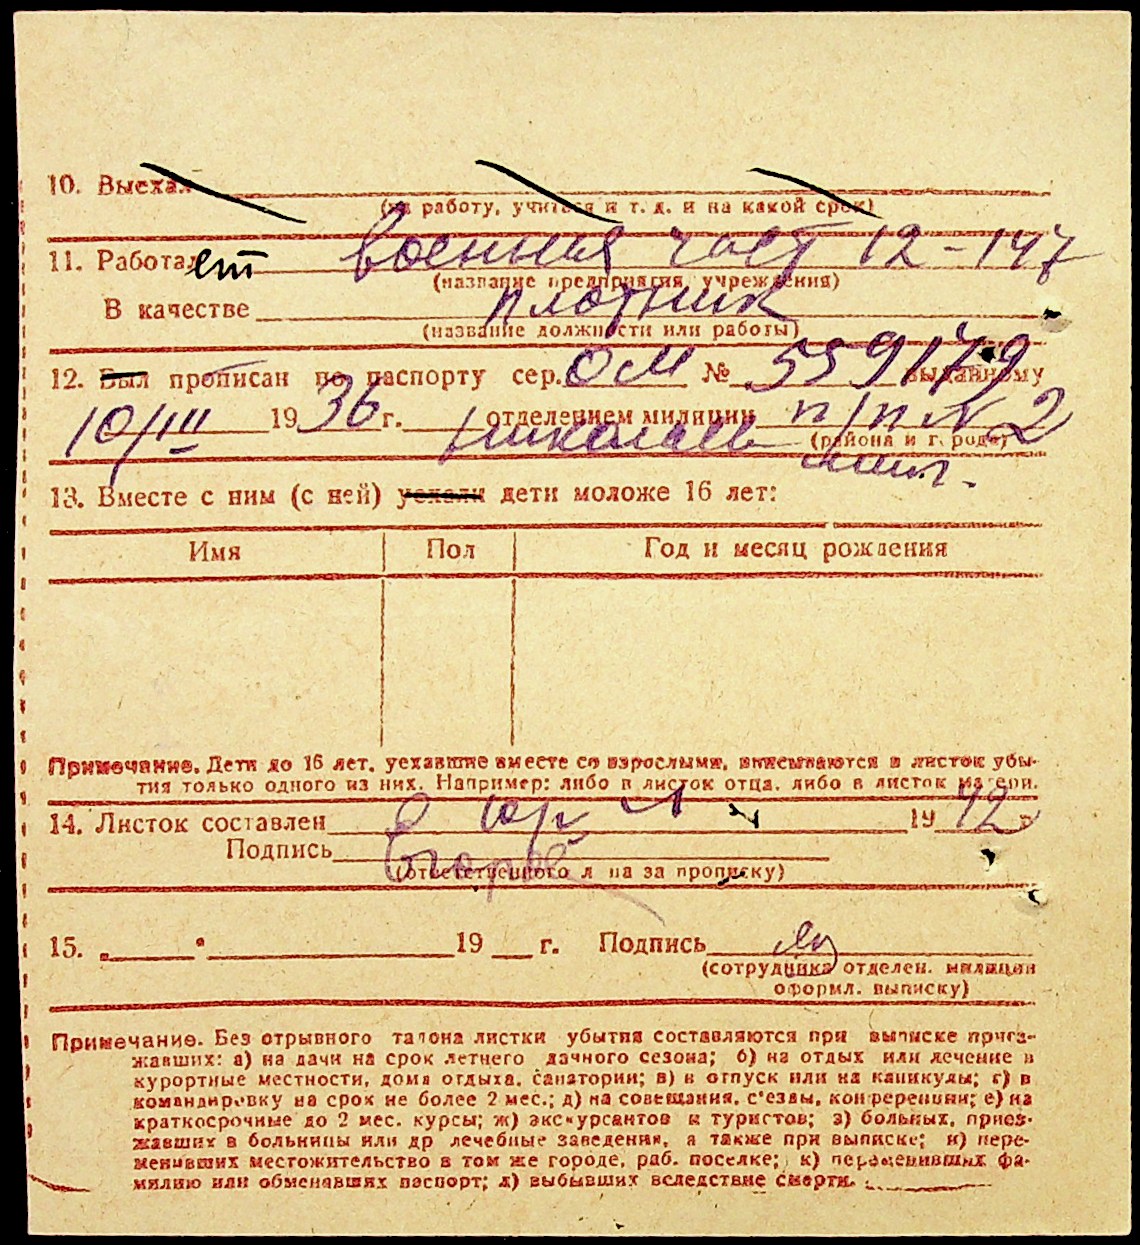 10. Выехал
(на работу, учиться и т. д. и на какой срок)
11. Работает военная част 12-147
(название предприятия, учреждения)
В качестве плотник
(название должности или работы)
12. Был прописан по паспорту сер. ОМ № 559179 выданному
10/III 1936 г. отделением милиции п/п N 2
Николаев (района и города)
мил.
13. Вместе с ним (с ней) уехали дети моложе 16 лет:
Имя Пол Год и месяц рождения
Примечание. Дети до 16 лет, уехавшие вместе со взрослыми, вписываются в листок убы-
тия только одного из них. Например: либо в листок отца, либо в листок матери.
14. Листок составлен 1942 г.
Подпись
(ответственного лица за прописку)
15. „ " 19 г. Подпись
(сотрудника отделен. милиции
оформл. выписку)
Примечание. Без отрывного талона листки убытия составляются при выписке приез-
жавших: а) на дачи на срок летнего дачного сезона; б) на отдых или лечение в
курортные местности, дома отдыха, санатории; в) в отпуск или на каникулы; г) в
командировку на срок не более 2 мес.; д) на совещания, с'езды, конференции; е) на
краткосрочные до 2 мес. курсы; ж) экскурсантов и туристов; з) больных, приез-
жавших в больницы или др лечебные заведения, а также при выписке; и) пере-
менивших местожительство в том же городе, раб. поселке; к) переменивших фа-
милию или обменявших паспорт; л) выбывших вследствие смерти.